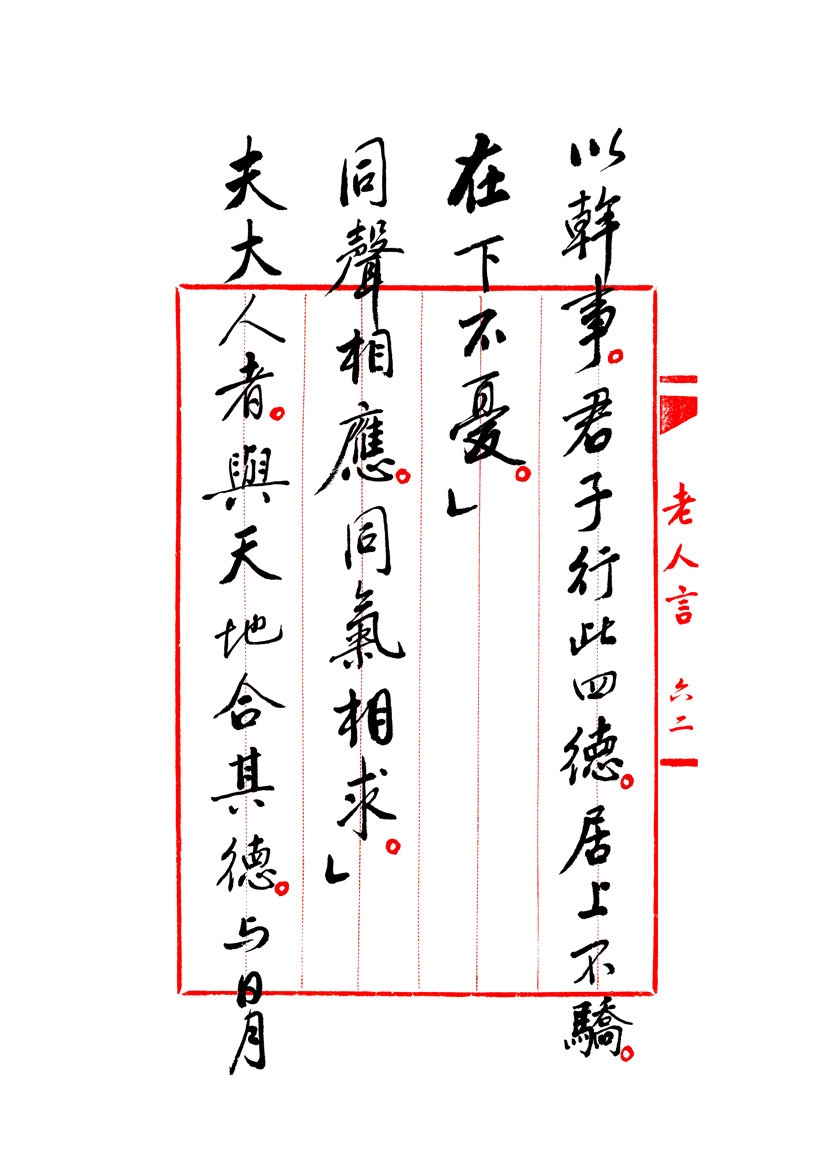 以幹事。君子行此四德。居上不驕。
在下不憂。」
同聲相應。同氣相求。」
夫大人者。與天地合其德。与日月
老人言 六二